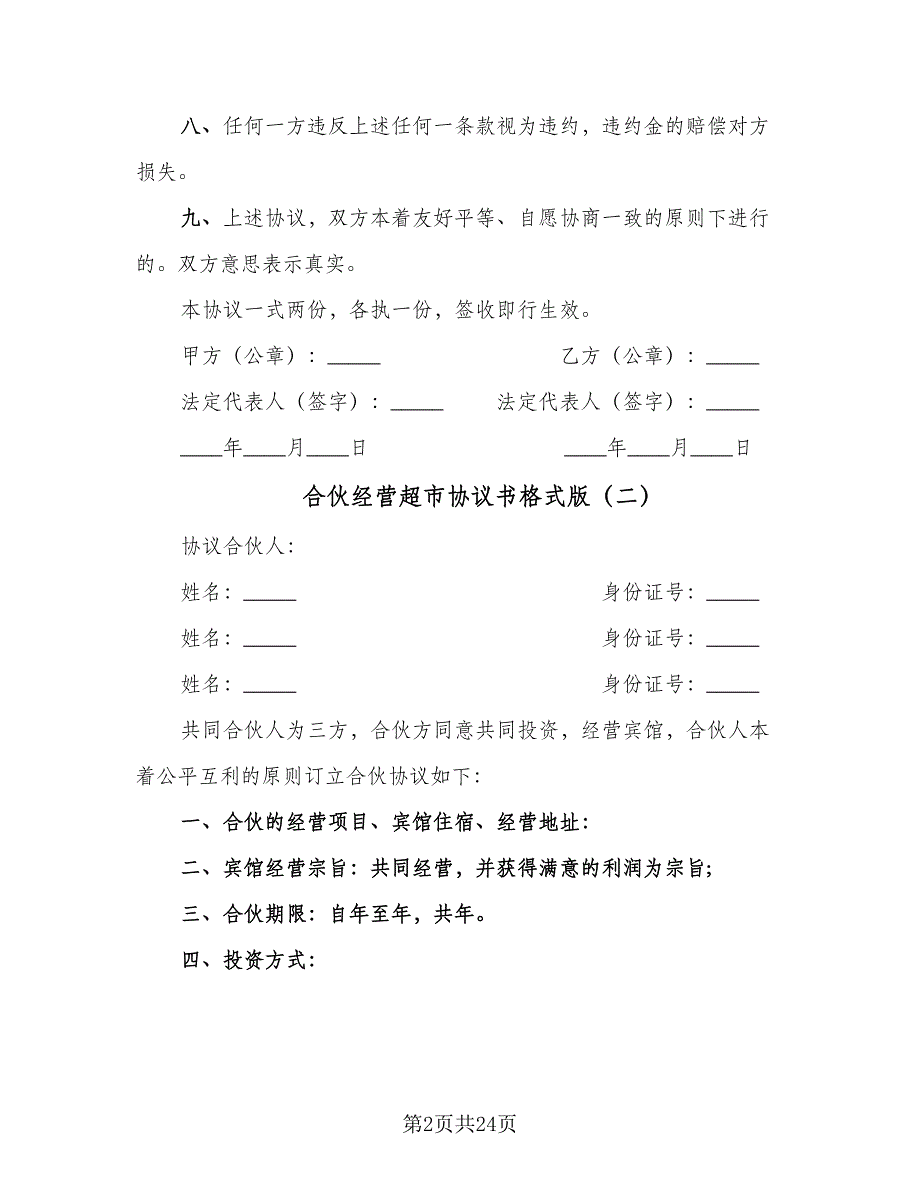 八、任何一方违反上述任何一条款视为违约，违约金的赔偿对方
损失。
九、上述协议，双方本着友好平等、自愿协商一致的原则下进行
的。双方意思表示真实。
本协议一式两份，各执一份，签收即行生效。
甲方（公章）：_____ 乙方（公章）：_____
法定代表人（签字）：_____ 法定代表人（签字）：_____
____年____月____日 ____年____月____日
合伙经营超市协议书格式版（二）
协议合伙人：
姓名：_____ 身份证号：_____
姓名：_____ 身份证号：_____
姓名：_____ 身份证号：_____
共同合伙人为三方，合伙方同意共同投资，经营宾馆，合伙人本
着公平互利的原则订立合伙协议如下：
一、合伙的经营项目、宾馆住宿、经营地址：
二、宾馆经营宗旨：共同经营，并获得满意的利润为宗旨；
三、合伙期限：自年至年，共年。
四、投资方式：
第2页共24页